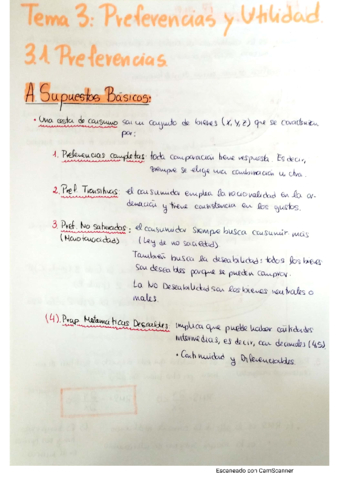 Tema 3: Preferencias y Utilidad.
3.1 Preferencias.
A Supuestos Básicos:
· Una cesta de consumo son un conjunto de bienes (x, y, z) que se caracterizan
por:
1. Preferencias completas: toda comparación tiene respuesta. Es decir,
siempre se elige una combinación u otra.
2. Pref. Transitivas: el consumidor emplea la racionalidad en la or-
denación y tiene consistencia en los gustos.
3. Pref. No saturadas: el consumidor siempre busca consumir más
(Monotonicidad) (Ley de no saciedad)
También busca la deseabilidad: todos los bienes
son deseables porque se pueden comprar.
La No Deseabilidad son los bienes neutrales o
males.
(4). Prop. Matemáticas Deseables: implica que puede haber cantidades
intermedias, es decir, con decimales (4,5)
· Continuidad y Diferenciables.
Escaneado con CamScanner